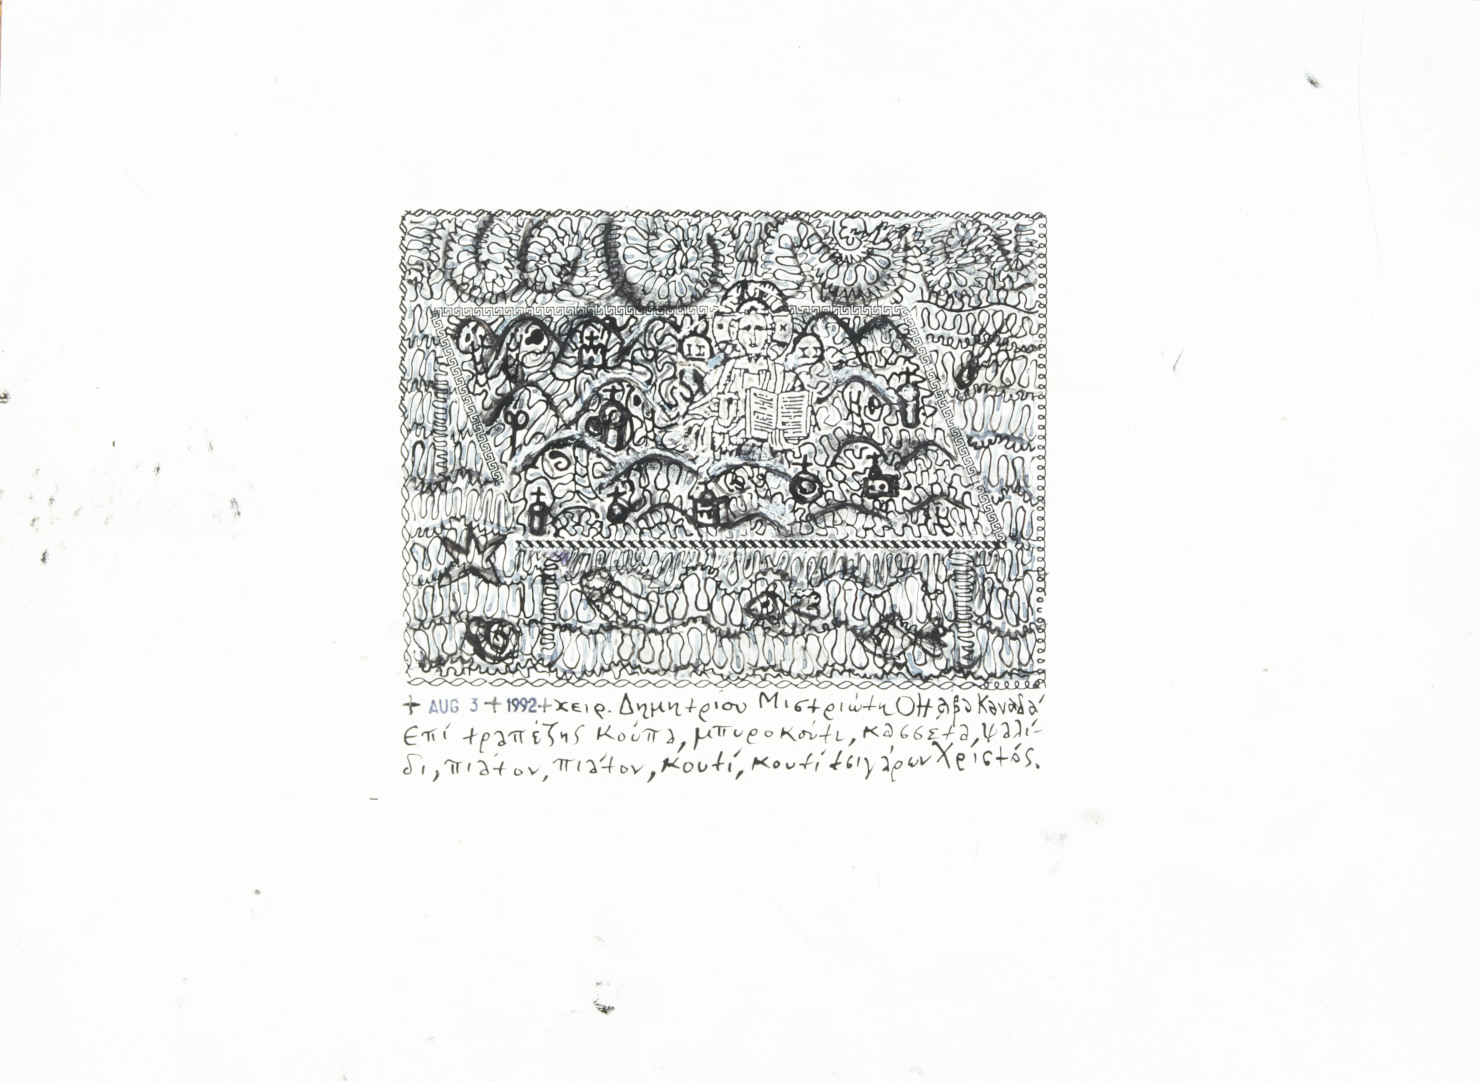 + AUG 3 + 1992 + χειρ. Δημητρίου Μιστριώτη Οττάβα Καναδά
Επί τραπέζης Κούπα, μπυροκούτι, κασσέτα, ψαλί-
δι, πιάτον, πιάτον, κουτί, κουτί τσιγάρων Χριστός.